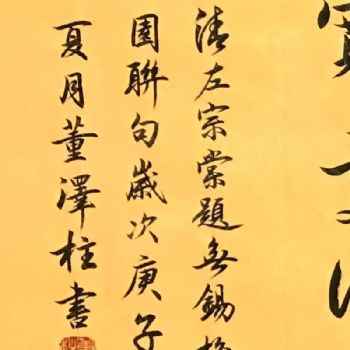 清左宗棠題無錫梅
園聯句歲次庚子
夏月董澤柱書